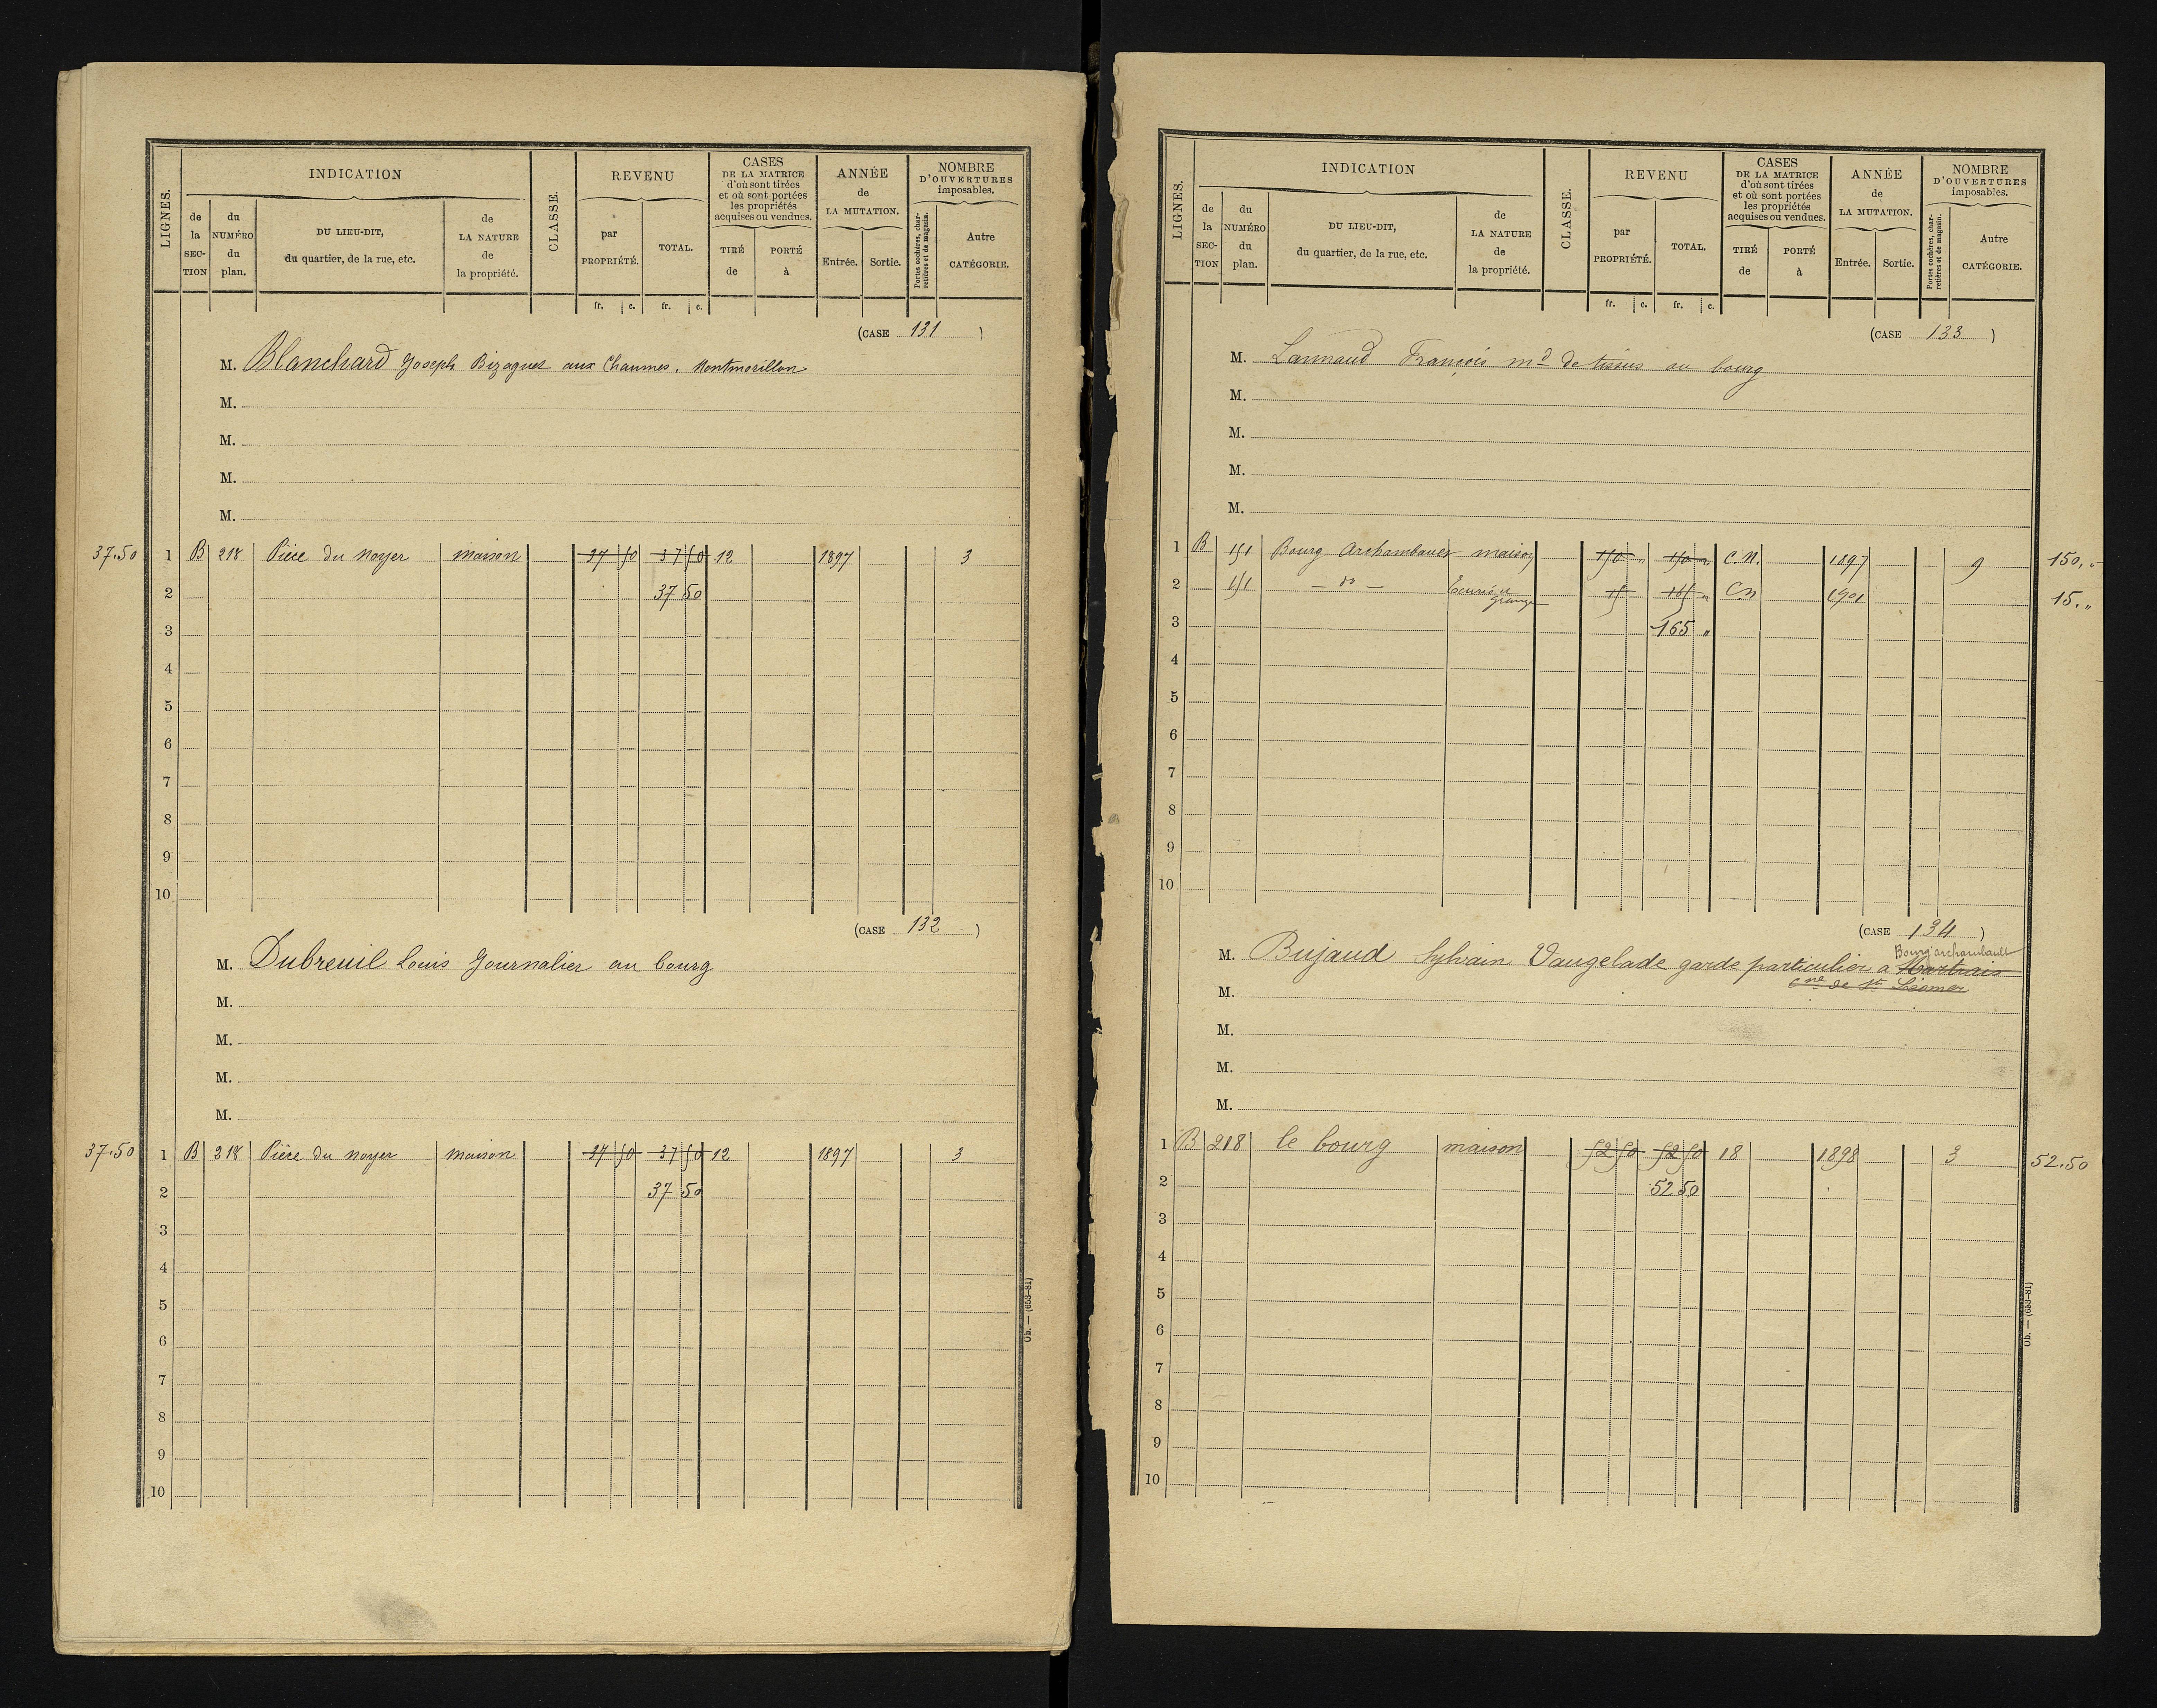 LIGNES.
INDICATION
de la SEC-TION
du NUMÉRO du plan.
DU LIEU-DIT, du quartier, de la rue, etc.
de LA NATURE de la propriété.
CLASSE.
REVENU
par PROPRIÉTÉ.
TOTAL.
CASES DE LA MATRICE d'où sont tirées et où sont portées les propriétés acquises ou vendues.
TIRÉ de
PORTÉ à
ANNÉE de LA MUTATION.
Entrée.
Sortie.
NOMBRE D'OUVERTURES imposables.
Portes cochères, charretières et de magasin.
Autre CATÉGORIE.
fr. c. fr. c.
(CASE 131 )
M. Blanchard Joseph Bizaguet aux Chaumes. Montmorillon
M.
M.
M.
M.
37.50 1 B 218 Pièce du Noyer maison 37 50 37 50 12 1897 3
2 37 50
3
4
5
6
7
8
9
10
(CASE 132 )
M. Dubreuil Louis Journalier au bourg
M.
M.
M.
M.
37.50 1 B 218 Pièce du noyer maison 37 50 37 50 12 1897 3
2 37 50
3
4
5
6
7
8
9
10
Ob. — (653-81)
LIGNES.
INDICATION
de la SEC-TION
du NUMÉRO du plan.
DU LIEU-DIT, du quartier, de la rue, etc.
de LA NATURE de la propriété.
CLASSE.
REVENU
par PROPRIÉTÉ.
TOTAL.
CASES DE LA MATRICE d'où sont tirées et où sont portées les propriétés acquises ou vendues.
TIRÉ de
PORTÉ à
ANNÉE de LA MUTATION.
Entrée.
Sortie.
NOMBRE D'OUVERTURES imposables.
Portes cochères, charretières et de magasin.
Autre CATÉGORIE.
fr. c. fr. c.
(CASE 133 )
M. François md de tissus au bourg
M.
M.
M.
M.
1 B 151 Bourg Archambault maison 150 " 150 " C.N. 1897 9 150. "
2 151 — do — Ecurie et grange 15 165 " CN 1901 15. "
3 165 "
4
5
6
7
8
9
10
(CASE 134 )
Bourg archambault
M. Bujaud Sylvain Vaugelade garde particulier a
M. cne de St Léomer
M.
M.
M.
1 B 218 le bourg maison 52 50 52 50 18 1898 3 52.50
2 52 50
3
4
5
6
7
8
9
10
Ob. — (653-81)